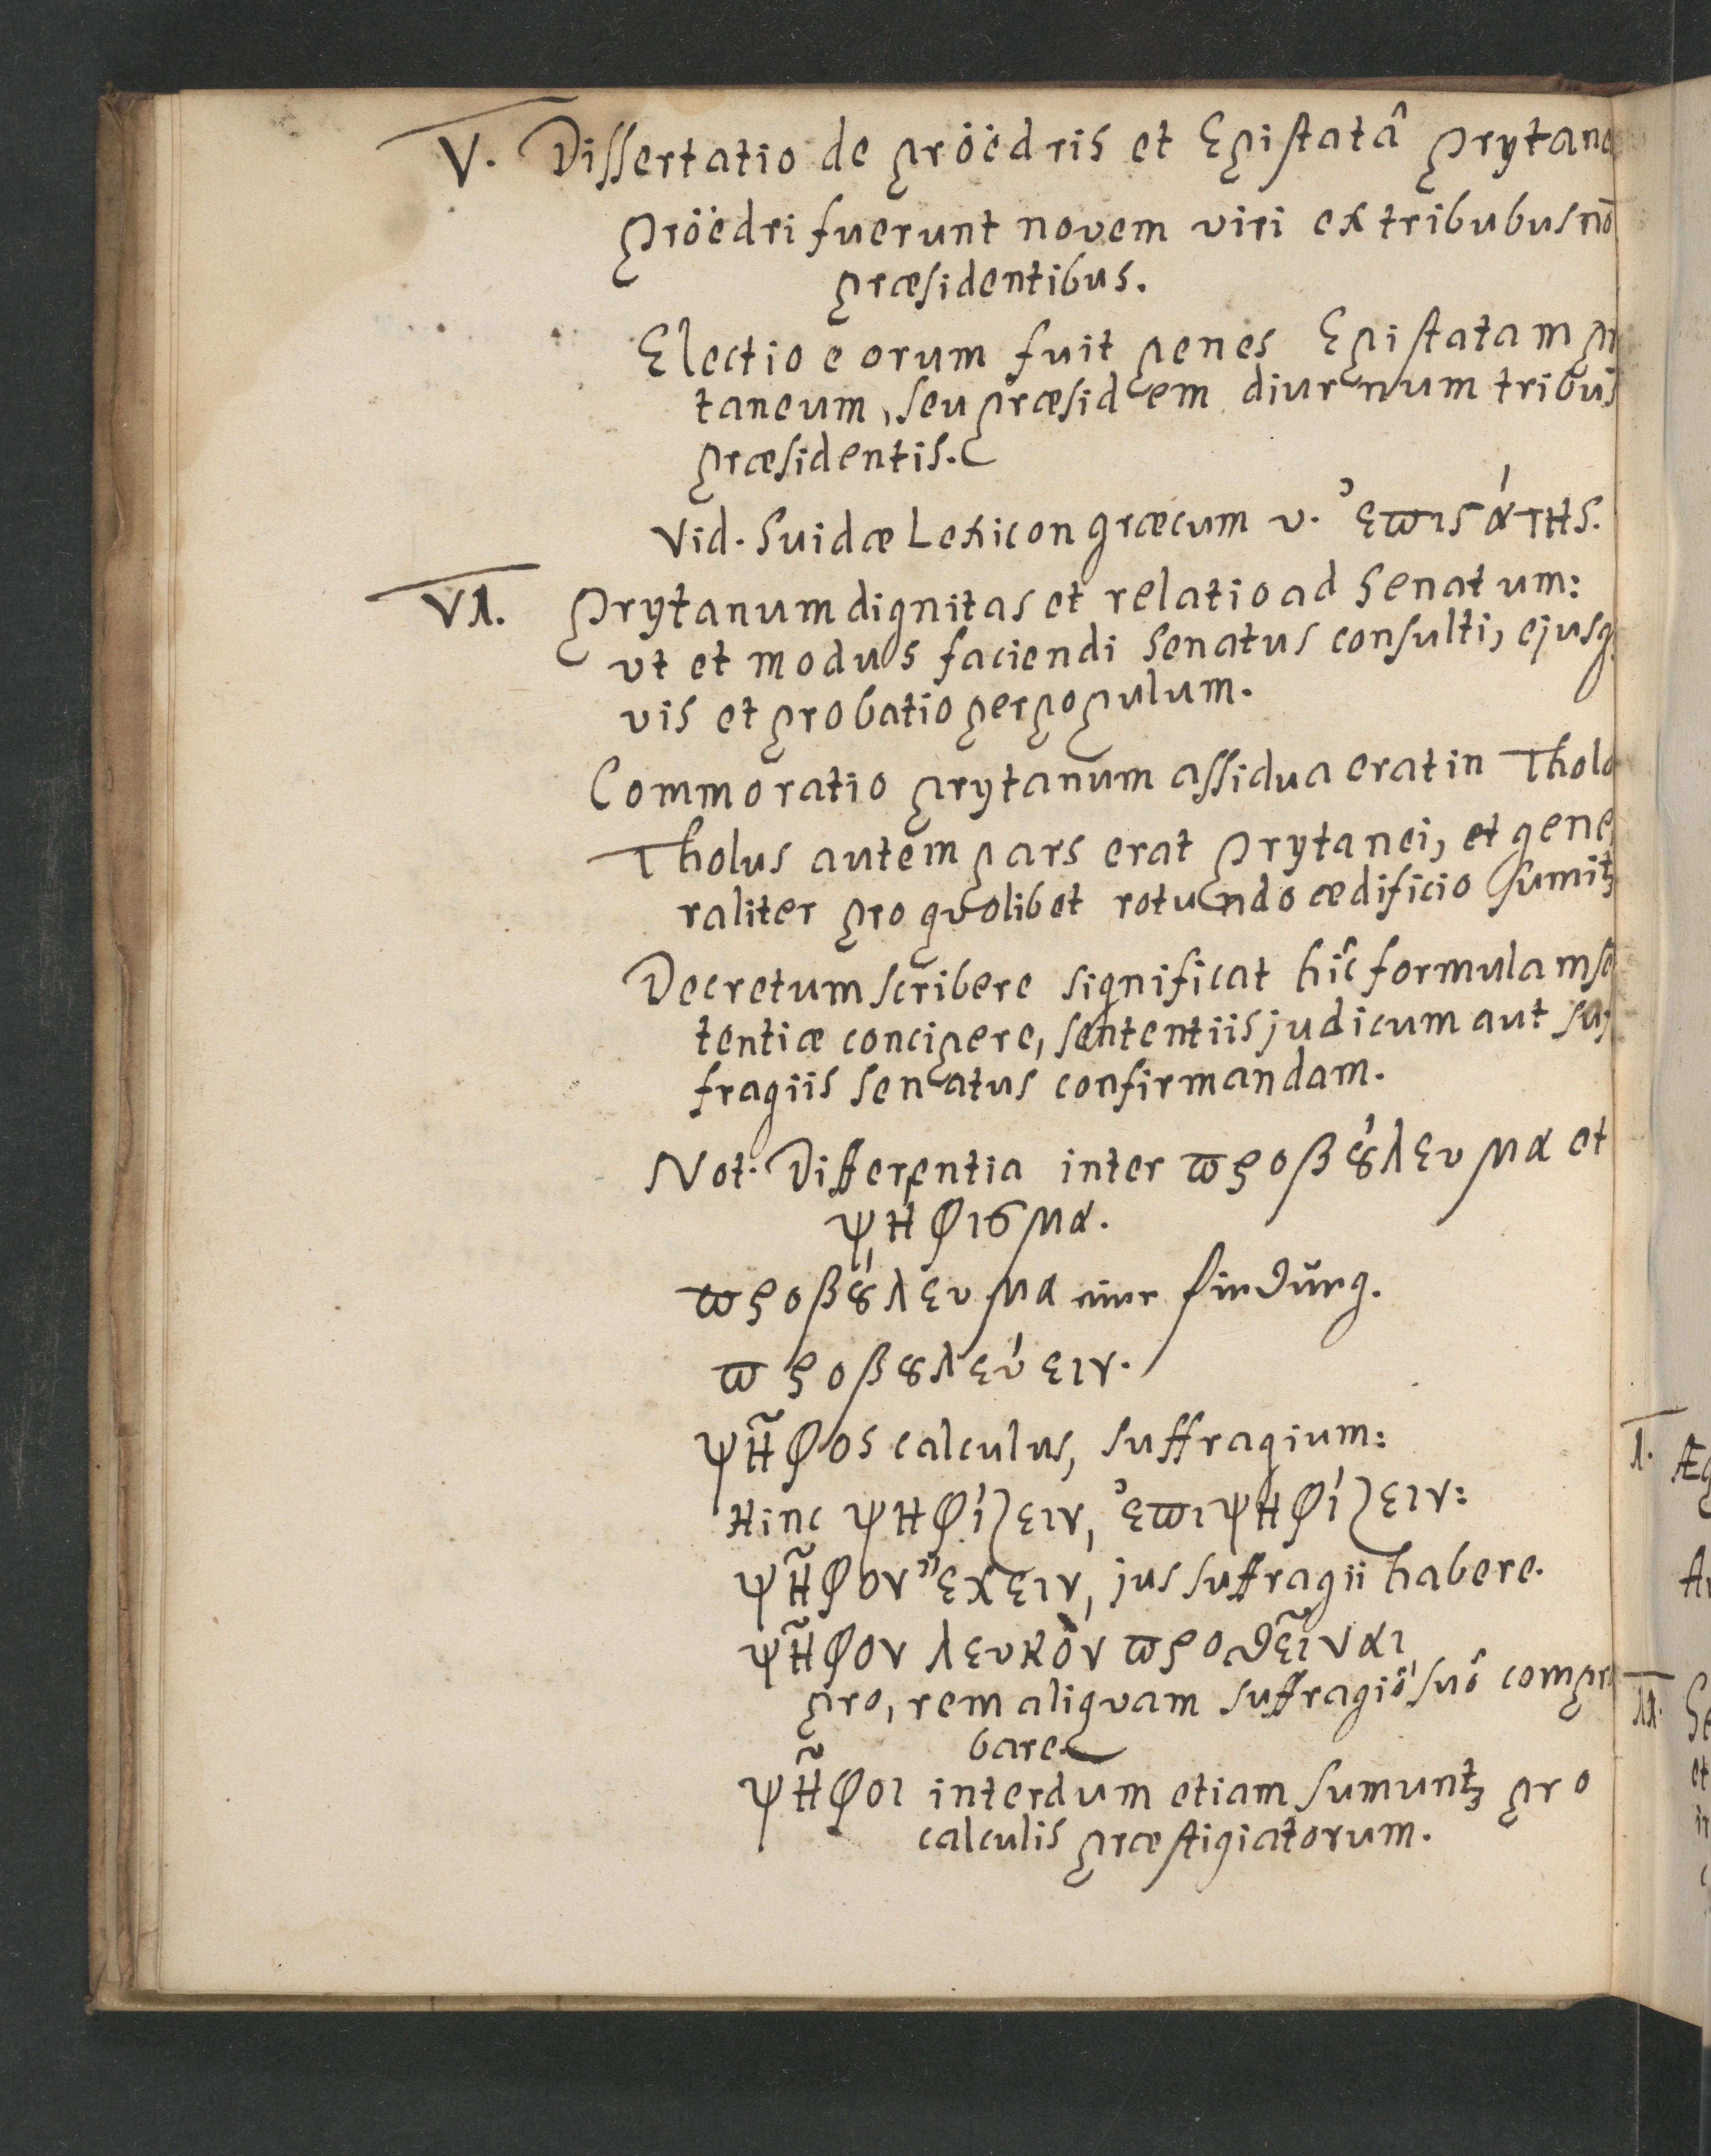 V. Dissertatio de pröëdris et Epistatâ Prytane
Pröëdri fuerunt novem viri ex tribubus nō
præsidentibus.
Electio eorum fuit penes Epistatam pr
taneum, seu præsidem diurnum tribus
præsidentis.
Vid. Suidæ Lexicon græcum v. ἐπιϛάτης.
VI. Prytanum dignitas et relatio ad Senatum:
ut et modus faciendi Senatus consulti, ejusq
vis et probatio per populum.
Commoratio prytanum assidua erat in Tholo
Tholus autem pars erat Prytanei, et gene
raliter pro quolibet rotundo ædificio sumitꝫ
Decretum scribere significat hîc formulam se
tentiæ concipere, sententiis judicum aut suf
fragiis senatus confirmandam.
Not. Differentia inter ϖροβȣ́λευμα et
ψήφισμα.
ϖροβȣ́λευμα eine findung.
ϖροβȣλεύειν.
ψῆφος calculus, suffragium:
Hinc ψηφίζειν, ἐϖιψηφίζειν:
ψῆφον ἔχειν, jus suffragii habere.
ψῆφον λευκὸν ϖροθεῖναι
pro, rem aliquam suffragiô suô compro
bare.
ψῆφοι interdum etiam sumuntꝫ pro
calculis præstigiatorum.
I. Æg
II. Se
et